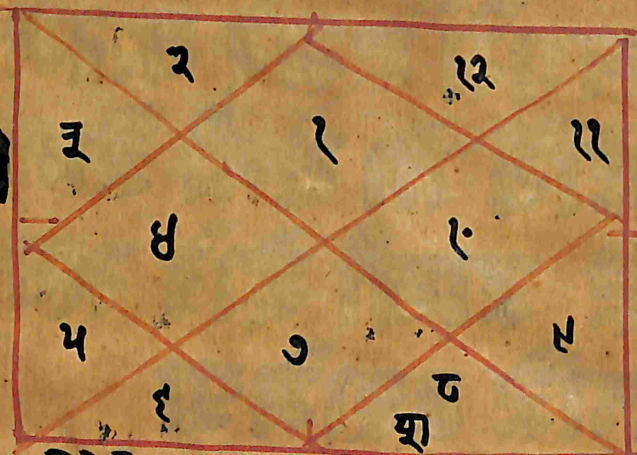 २
१२
३
१
११
४
१०
५
७
९
६
८
श